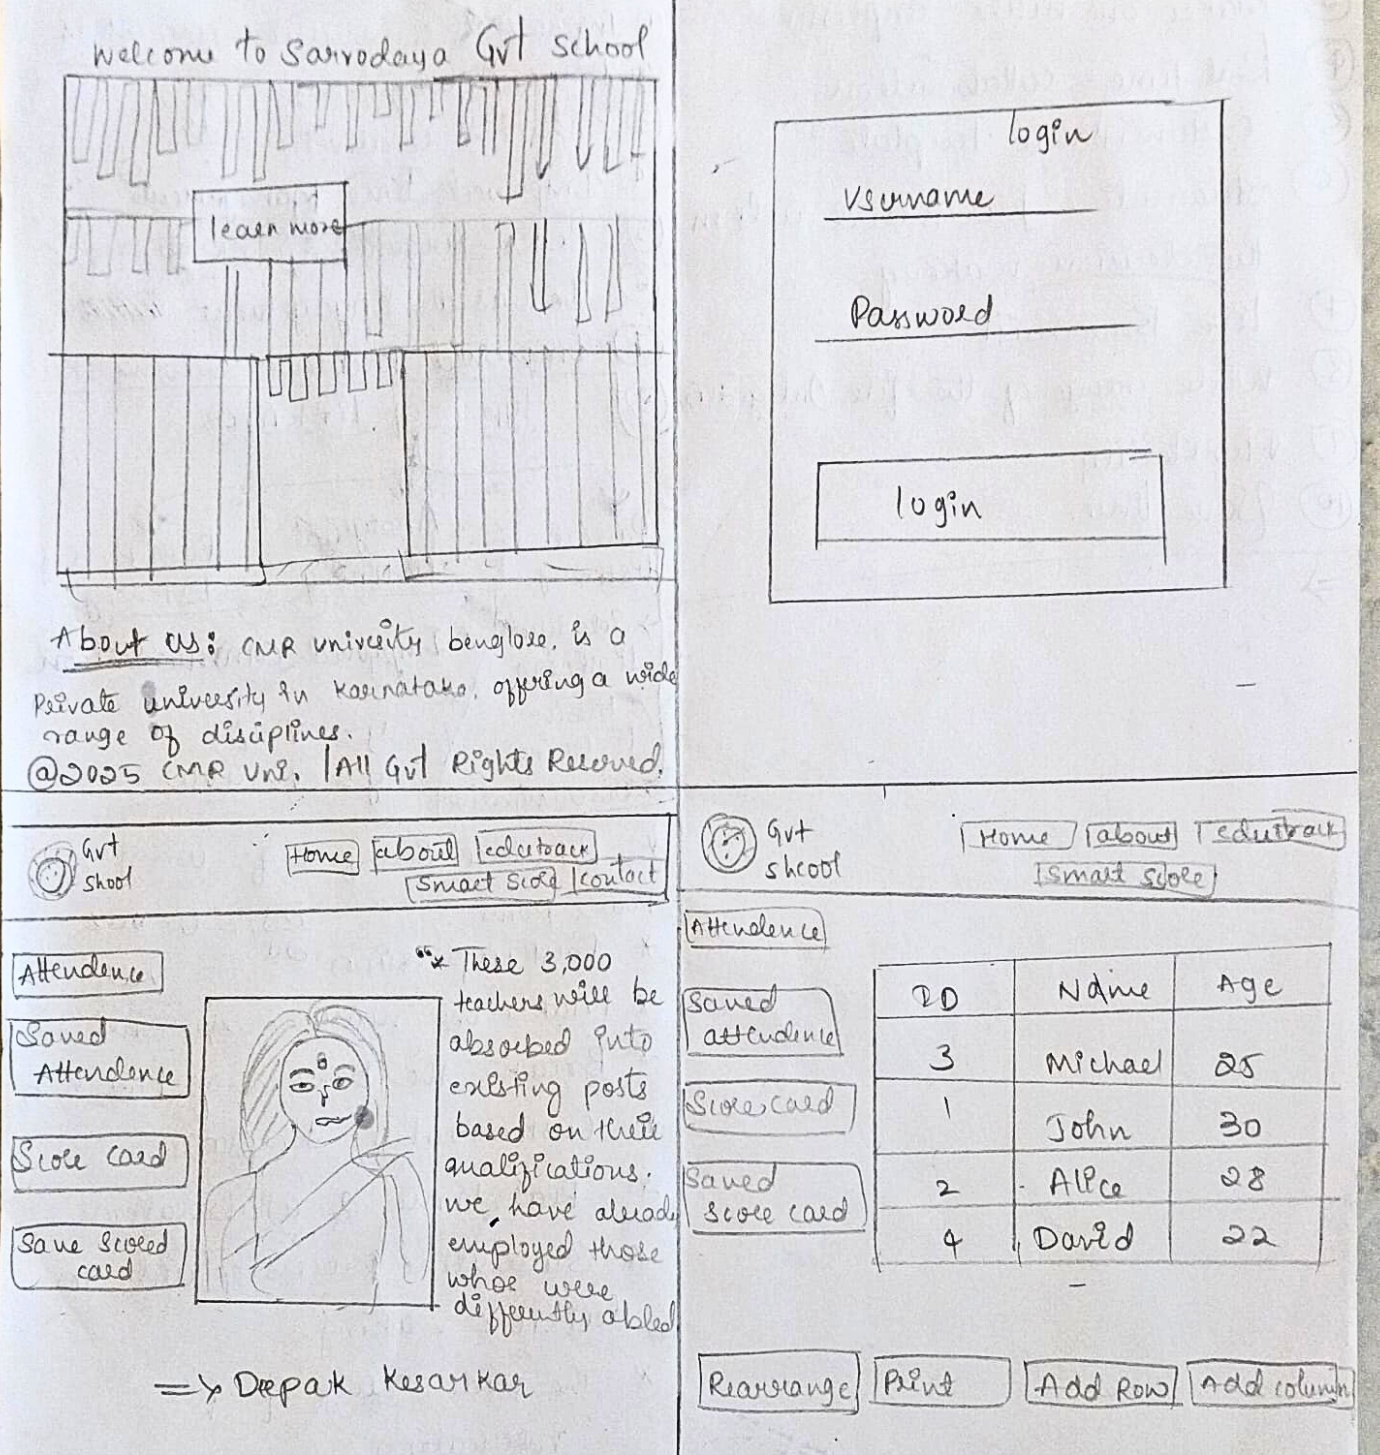 Welcome to Sarvodaya Gvt School
learn more
About us: CMR univeeity benglose. is a
Private univeesity in Karnatako. offering a wide
range of disciplines.
@2025 CMR Uni. |All Gvt Rights Reserved.
login
Username
Password
login
Gvt
Shool
Home about edutrack
Smart Score contact
Attendence
Saved
Attendence
Score card
Save Scored
card
"* These 3,000
teachers will be
absorbed into
existing posts
based on their
qualifications.
we have alread
employed those
whoe were
differently abled
=> Deepak Kesarkar
Gvt
shcool
Home about edutrack
Smart Score
Attendence
Saved
attendence
Score card
Saved
Score card
ID Name Age
3 Michael 25
1 John 30
2 Alice 28
4 David 22
Rearrange Print Add Row Add column